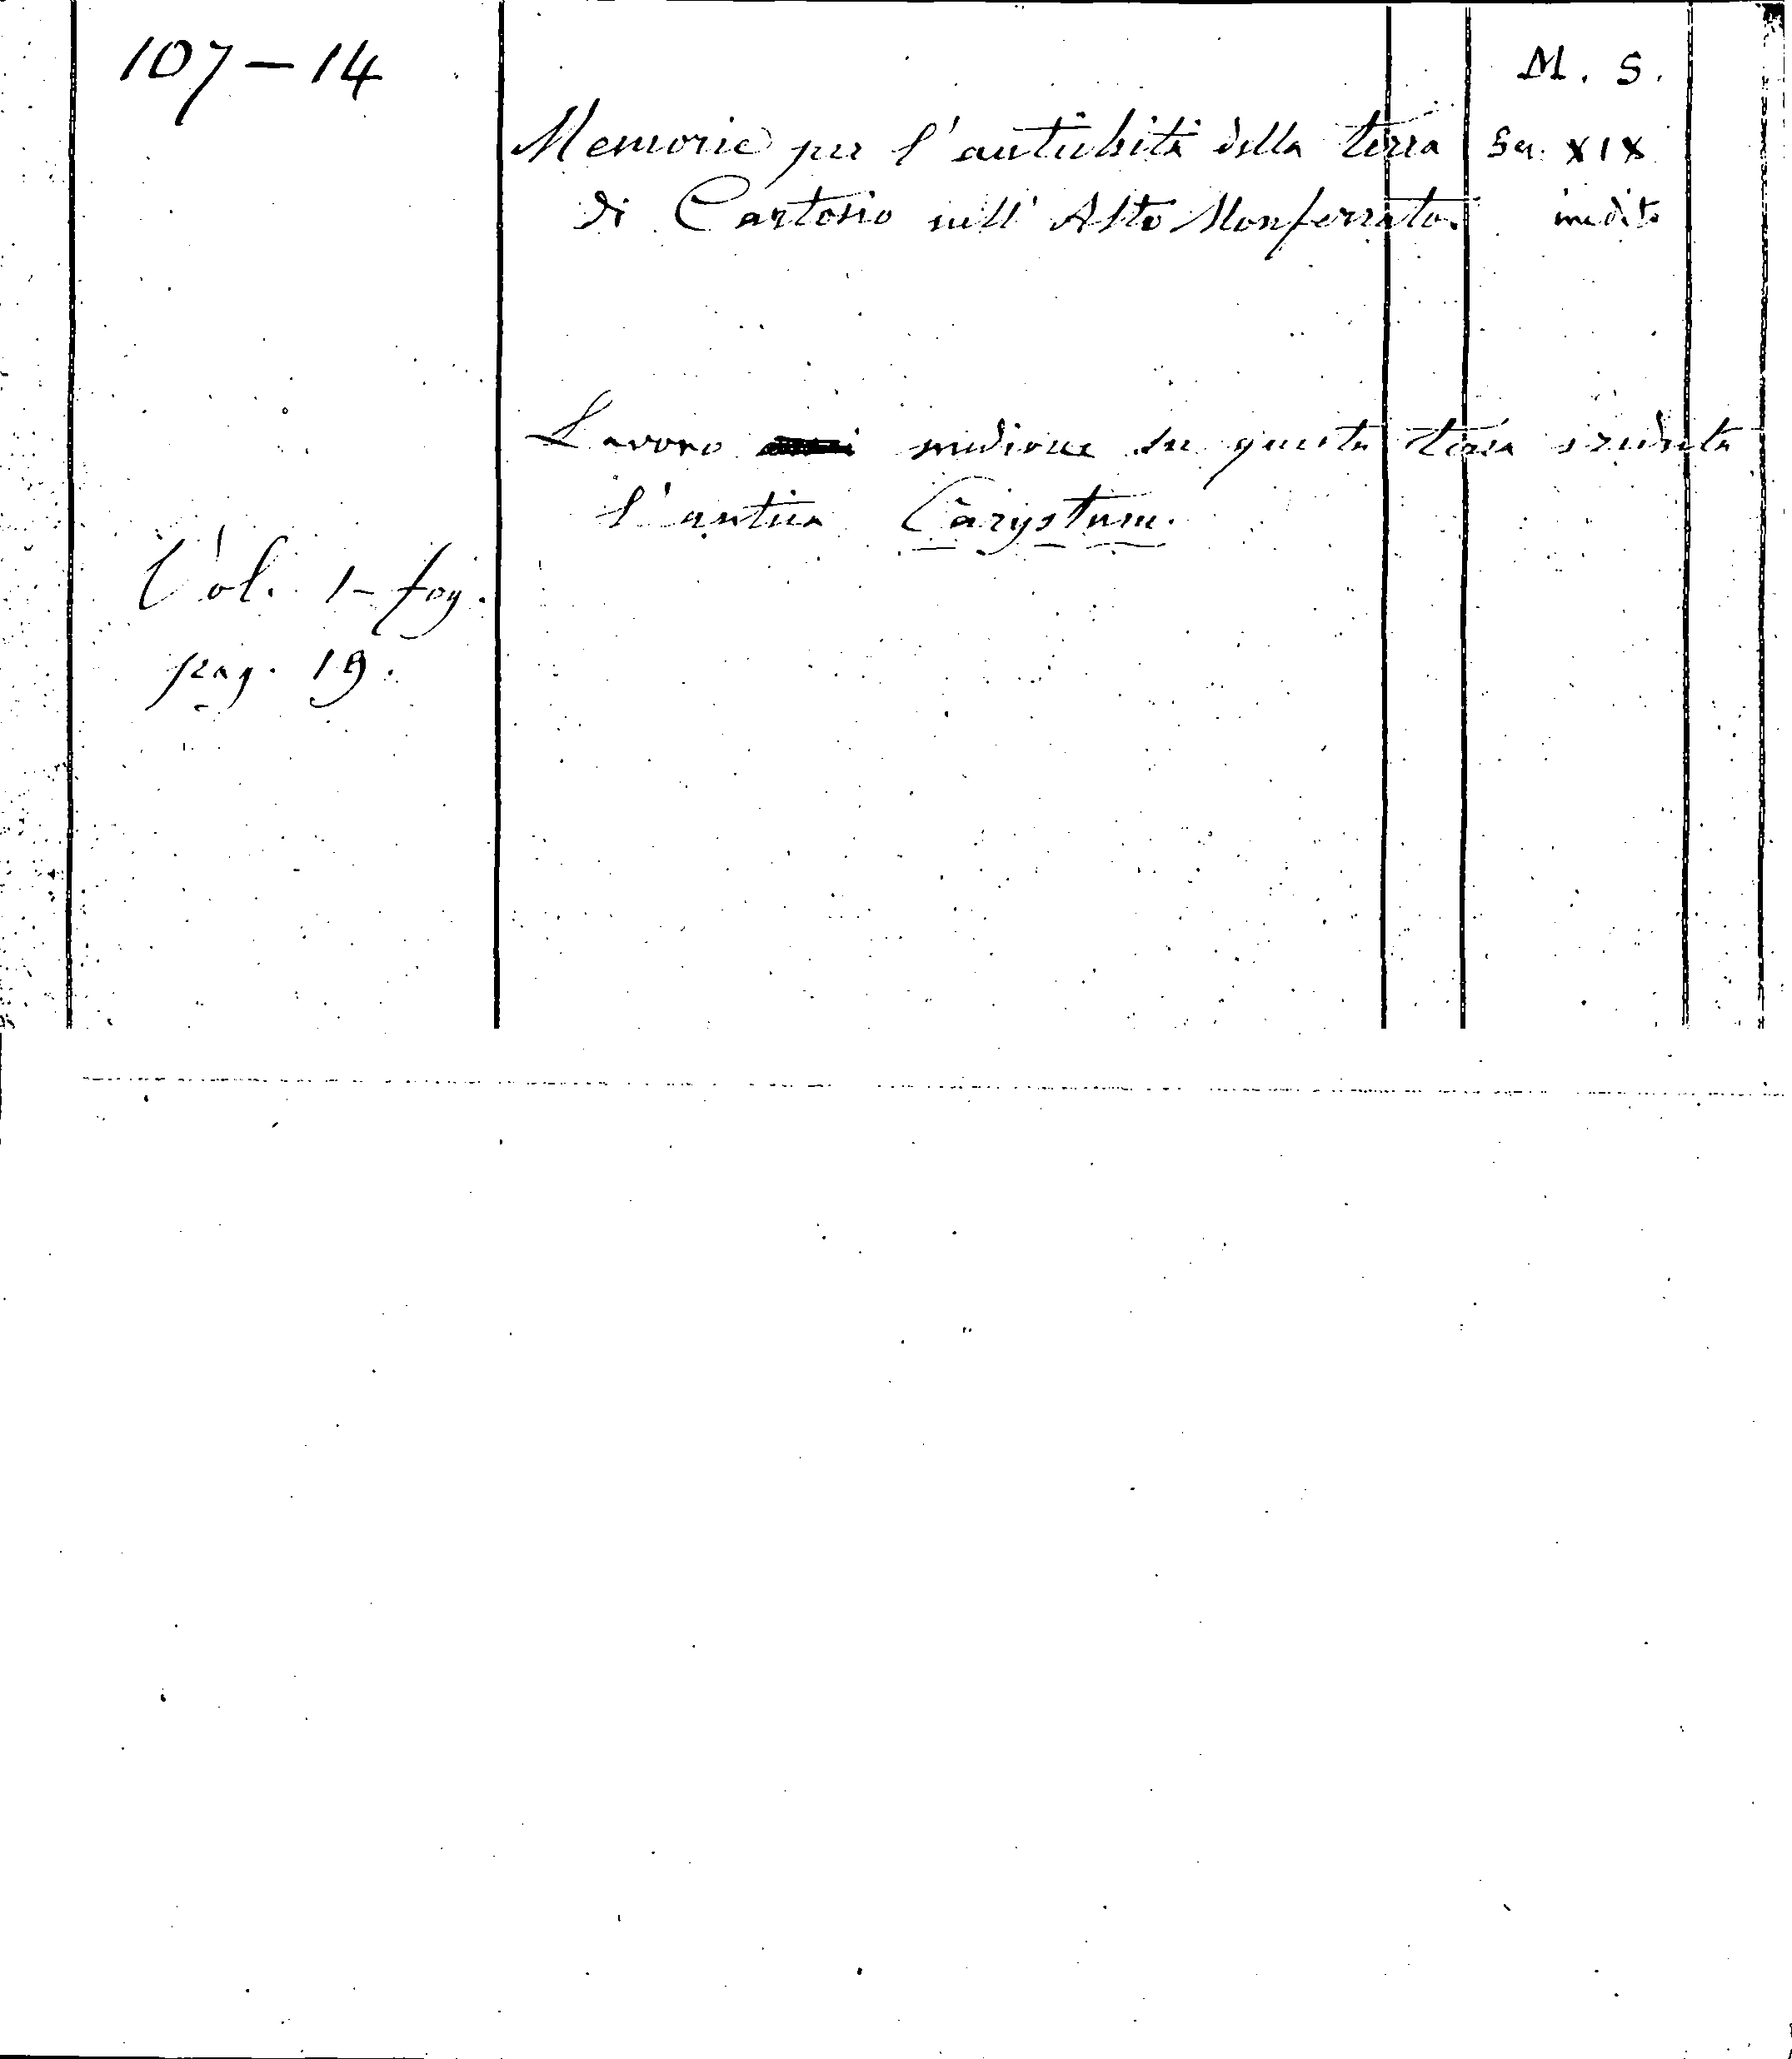 107 – 14
M. S.
Memorie per l'antichità della terra Sec. XIX
di Cartosio nell' Alto Monferrato. inedito
Lavoro mediocre su questa terra creduta
l'antica Carystum.
Vol. 1 – fog.
pag. 19.